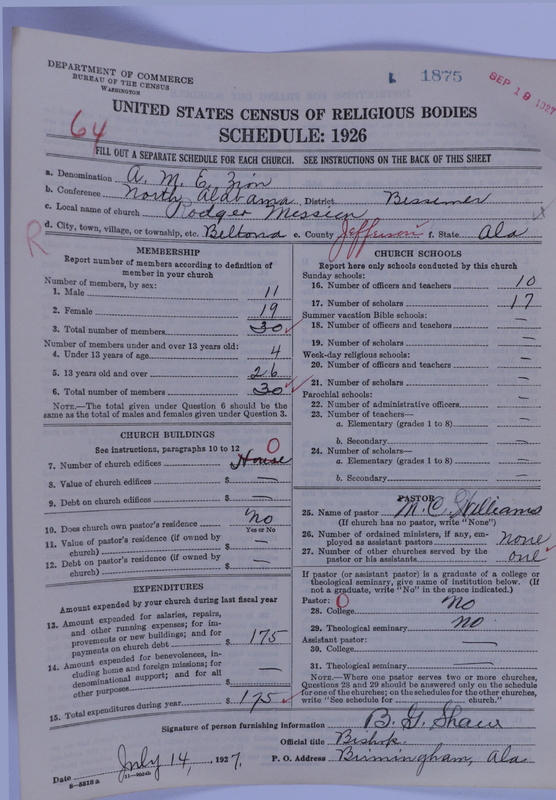 DEPARTMENT OF COMMERCE
BUREAU OF THE CENSUS
WASHINGTON
1875
SEP 19 1927
UNITED STATES CENSUS OF RELIGIOUS BODIES
SCHEDULE: 1926
64
FILL OUT A SEPARATE SCHEDULE FOR EACH CHURCH. SEE INSTRUCTIONS ON THE BACK OF THIS SHEET
a. Denomination A. M. E. Zion
b. Conference North Alabama District Bessemer
c. Local name of church Rodger Mession
d. City, town, village, or township, etc. Beltona e. County Jefferson f. State Ala
R
MEMBERSHIP
Report number of members according to definition of member in your church
Number of members, by sex:
1. Male 11
2. Female 19
3. Total number of members 30
Number of members under and over 13 years old:
4. Under 13 years of age 4
5. 13 years old and over 26
6. Total number of members 30
NOTE.—The total given under Question 6 should be the same as the total of males and females given under Question 3.
CHURCH BUILDINGS
See instructions, paragraphs 10 to 12 0
7. Number of church edifices House
8. Value of church edifices $ —
9. Debt on church edifices $ —
10. Does church own pastor's residence No
Yes or No
11. Value of pastor's residence (if owned by church) $ —
12. Debt on pastor's residence (if owned by church) $ —
EXPENDITURES
Amount expended by your church during last fiscal year
13. Amount expended for salaries, repairs, and other running expenses; for improvements or new buildings; and for payments on church debt $ 175
14. Amount expended for benevolences, including home and foreign missions; for denominational support; and for all other purposes $ —
15. Total expenditures during year $ 175
CHURCH SCHOOLS
Report here only schools conducted by this church
Sunday schools:
16. Number of officers and teachers 10
17. Number of scholars 17
Summer vacation Bible schools:
18. Number of officers and teachers —
19. Number of scholars —
Week-day religious schools:
20. Number of officers and teachers —
21. Number of scholars —
Parochial schools:
22. Number of administrative officers —
23. Number of teachers—
a. Elementary (grades 1 to 8) —
b. Secondary —
24. Number of scholars—
a. Elementary (grades 1 to 8) —
b. Secondary —
PASTOR
25. Name of pastor M. C. Williams
(If church has no pastor, write "None")
26. Number of ordained ministers, if any, employed as assistant pastors none
27. Number of other churches served by the pastor or his assistants one
If pastor (or assistant pastor) is a graduate of a college or theological seminary, give name of institution below. (If not a graduate, write "No" in the space indicated.)
Pastor: 0
28. College No
29. Theological seminary No
Assistant pastor:
30. College —
31. Theological seminary —
NOTE.—Where one pastor serves two or more churches, Questions 28 and 29 should be answered only on the schedule for one of the churches; on the schedules for the other churches, write "See schedule for church."
Signature of person furnishing information B. G. Shaw
Official title Bishop
Date July 14, 1927. P. O. Address Birmingham, Ala
8-5518a 11-9024b